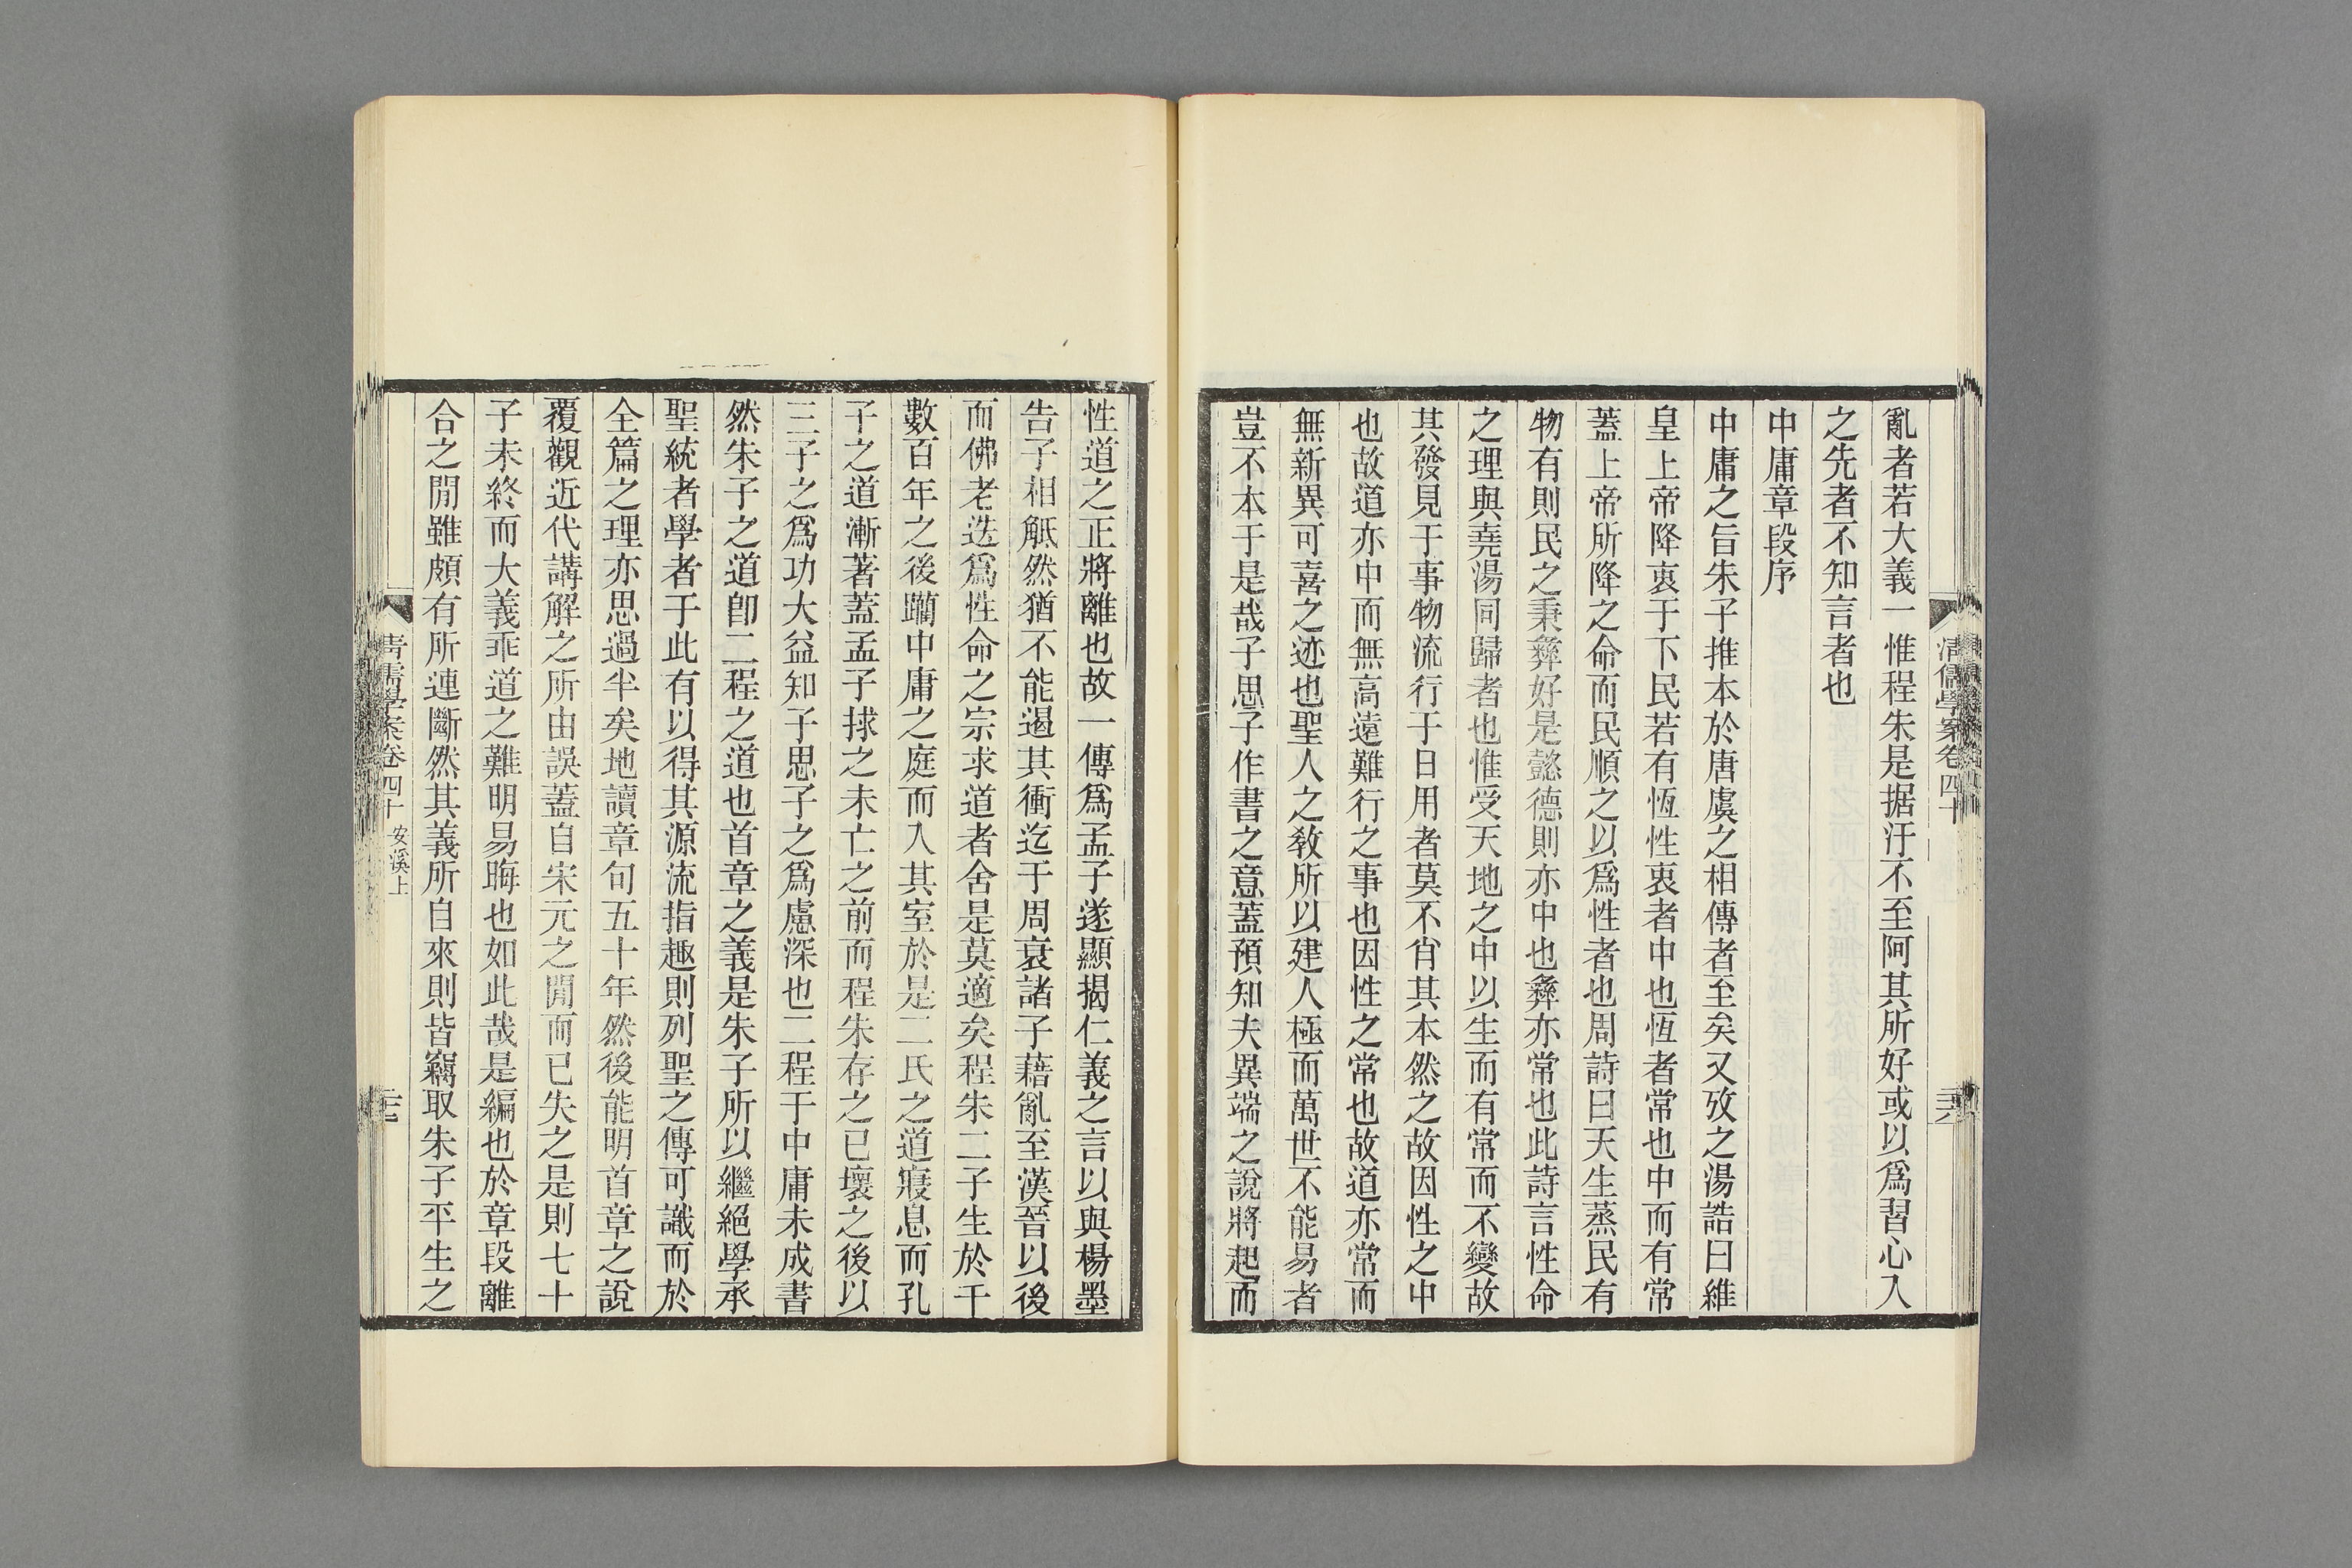 亂者若大義一惟程朱是据汙不至阿其所好或以爲習心入
之先者不知言者也
中庸章段序
中庸之旨朱子推本於唐虞之相傳者至矣又攷之湯誥曰維
皇上帝降衷于下民若有恆性衷者中也恆者常也中而有常
蓋上帝所降之命而民順之以爲性者也周詩曰天生蒸民有
物有則民之秉彝好是懿德則亦中也彝亦常也此詩言性命
之理與堯湯同歸者也惟受天地之中以生而有常而不變故
其發見于事物流行于日用者莫不肖其本然之故因性之中
也故道亦中而無高遠難行之事也因性之常也故道亦常而
無新異可喜之迹也聖人之敎所以建人極而萬世不能易者
豈不本于是哉子思子作書之意蓋預知夫異端之說將起而
清儒學案卷四十
性道之正將離也故一傳爲孟子遂顯揭仁義之言以與楊墨
告子相觝然猶不能遏其衝迄于周衰諸子藉亂至漢晉以後
而佛老迭爲性命之宗求道者舍是莫適矣程朱二子生於千
數百年之後躪中庸之庭而入其室於是二氏之道寢息而孔
子之道漸著蓋孟子捄之未亡之前而程朱存之已壞之後以
三子之爲功大益知子思子之爲慮深也二程于中庸未成書
然朱子之道卽二程之道也首章之義是朱子所以繼絕學承
聖統者學者于此有以得其源流指趣則列聖之傳可識而於
全篇之理亦思過半矣地讀章句五十年然後能明首章之說
覆觀近代講解之所由誤蓋自宋元之閒而已失之是則七十
子未終而大義乖道之難明易晦也如此哉是編也於章段離
合之閒雖頗有所連斷然其義所自來則皆竊取朱子平生之
清儒學案卷四十 安溪上